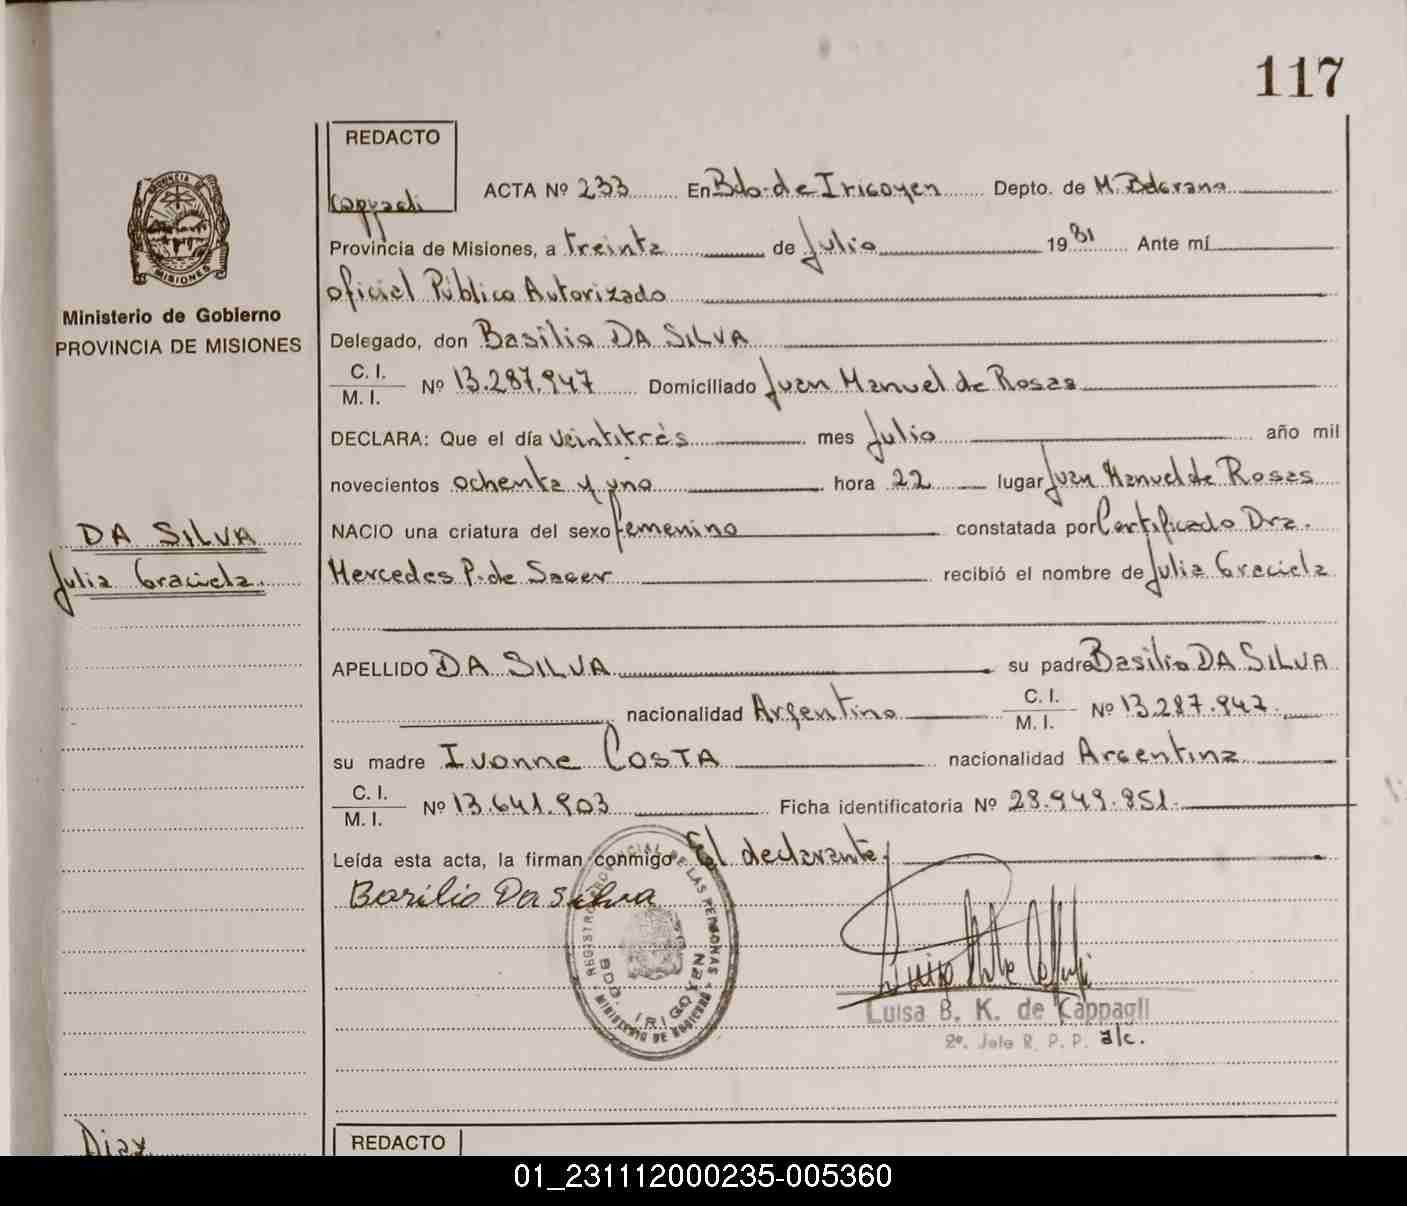 117
REDACTO
Cappagli
ACTA Nº 233 En Bdo. de Irigoyen Depto. de M. Belgrano
Provincia de Misiones, a treinta de Julio 1981 Ante mí
oficial Público Autorizado
Delegado, don Basilio DA SILVA
C. I.
M. I. Nº 13.287.947 Domiciliado Juan Manuel de Rosas
DECLARA: Que el día veintitrés mes Julio año mil
novecientos ochenta y uno hora 22 lugar Juan Manuel de Rosas
NACIO una criatura del sexo femenino constatada por Certificado Dra.
Mercedes P. de Sager recibió el nombre de Julia Graciela
APELLIDO DA SILVA su padre Basilio DA SILVA
nacionalidad Argentino C. I.
M. I. Nº 13.287.947
su madre Ivonne COSTA nacionalidad Argentina
C. I.
M. I. Nº 13.641.903 Ficha identificatoria Nº 28.949.851
Leída esta acta, la firman conmigo El declarante
Basilio Da Silva
REGISTRO PROVINCIAL DE LAS PERSONAS
BDO. IRIGOYEN
MINISTERIO DE
Luisa B. K. de Cappagli
2º. Jefe R. P. P. a/c.
PROVINCIA DE
MISIONES
Ministerio de Gobierno
PROVINCIA DE MISIONES
DA SILVA
Julia Graciela
Diaz
REDACTO
01_231112000235-005360